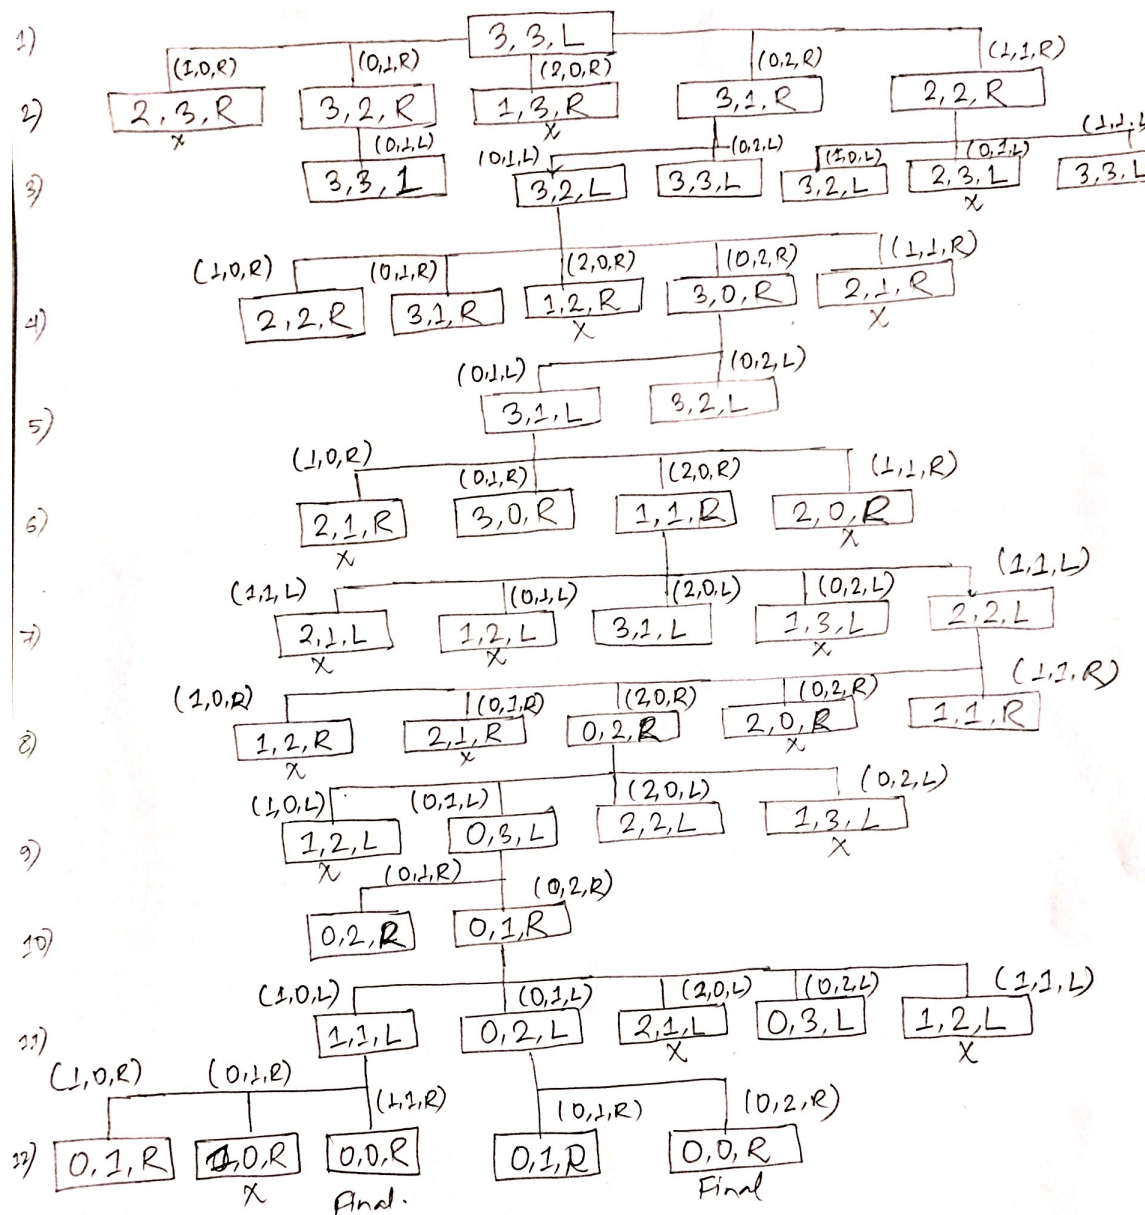 1) 3,3,L
(1,0,R) (0,1,R) (2,0,R) (0,2,R) (1,1,R)
2) 2,3,R 3,2,R 1,3,R 3,1,R 2,2,R
x x
(0,1,L) (0,1,L) (0,2,L) (1,0,L) (0,1,L) (1,1,L
3) 3,3,1 3,2,L 3,3,L 3,2,L 2,3,L 3,3,L
x
(1,0,R) (0,1,R) (2,0,R) (0,2,R) (1,1,R)
4) 2,2,R 3,1,R 1,2,R 3,0,R 2,1,R
x x
(0,1,L) (0,2,L)
5) 3,1,L 3,2,L
(1,0,R) (0,1,R) (2,0,R) (1,1,R)
6) 2,1,R 3,0,R 1,1,R 2,0,R
x x
(1,1,L) (0,1,L) (2,0,L) (0,2,L) (1,1,L)
7) 2,1,L 1,2,L 3,1,L 1,3,L 2,2,L
x x x
(1,0,R) (0,1,R) (2,0,R) (0,2,R) (1,1,R)
8) 1,2,R 2,1,R 0,2,R 2,0,R 1,1,R
x x x
(1,0,L) (0,1,L) (2,0,L) (0,2,L)
9) 1,2,L 0,3,L 2,2,L 1,3,L
x x
(0,1,R) (0,2,R)
10) 0,2,R 0,1,R
(1,0,L) (0,1,L) (2,0,L) (0,2,L) (1,1,L)
11) 1,1,L 0,2,L 2,1,L 0,3,L 1,2,L
x x
(1,0,R) (0,1,R) (1,1,R) (0,1,R) (0,2,R)
12) 0,1,R 1,0,R 0,0,R 0,1,R 0,0,R
x Final. Final